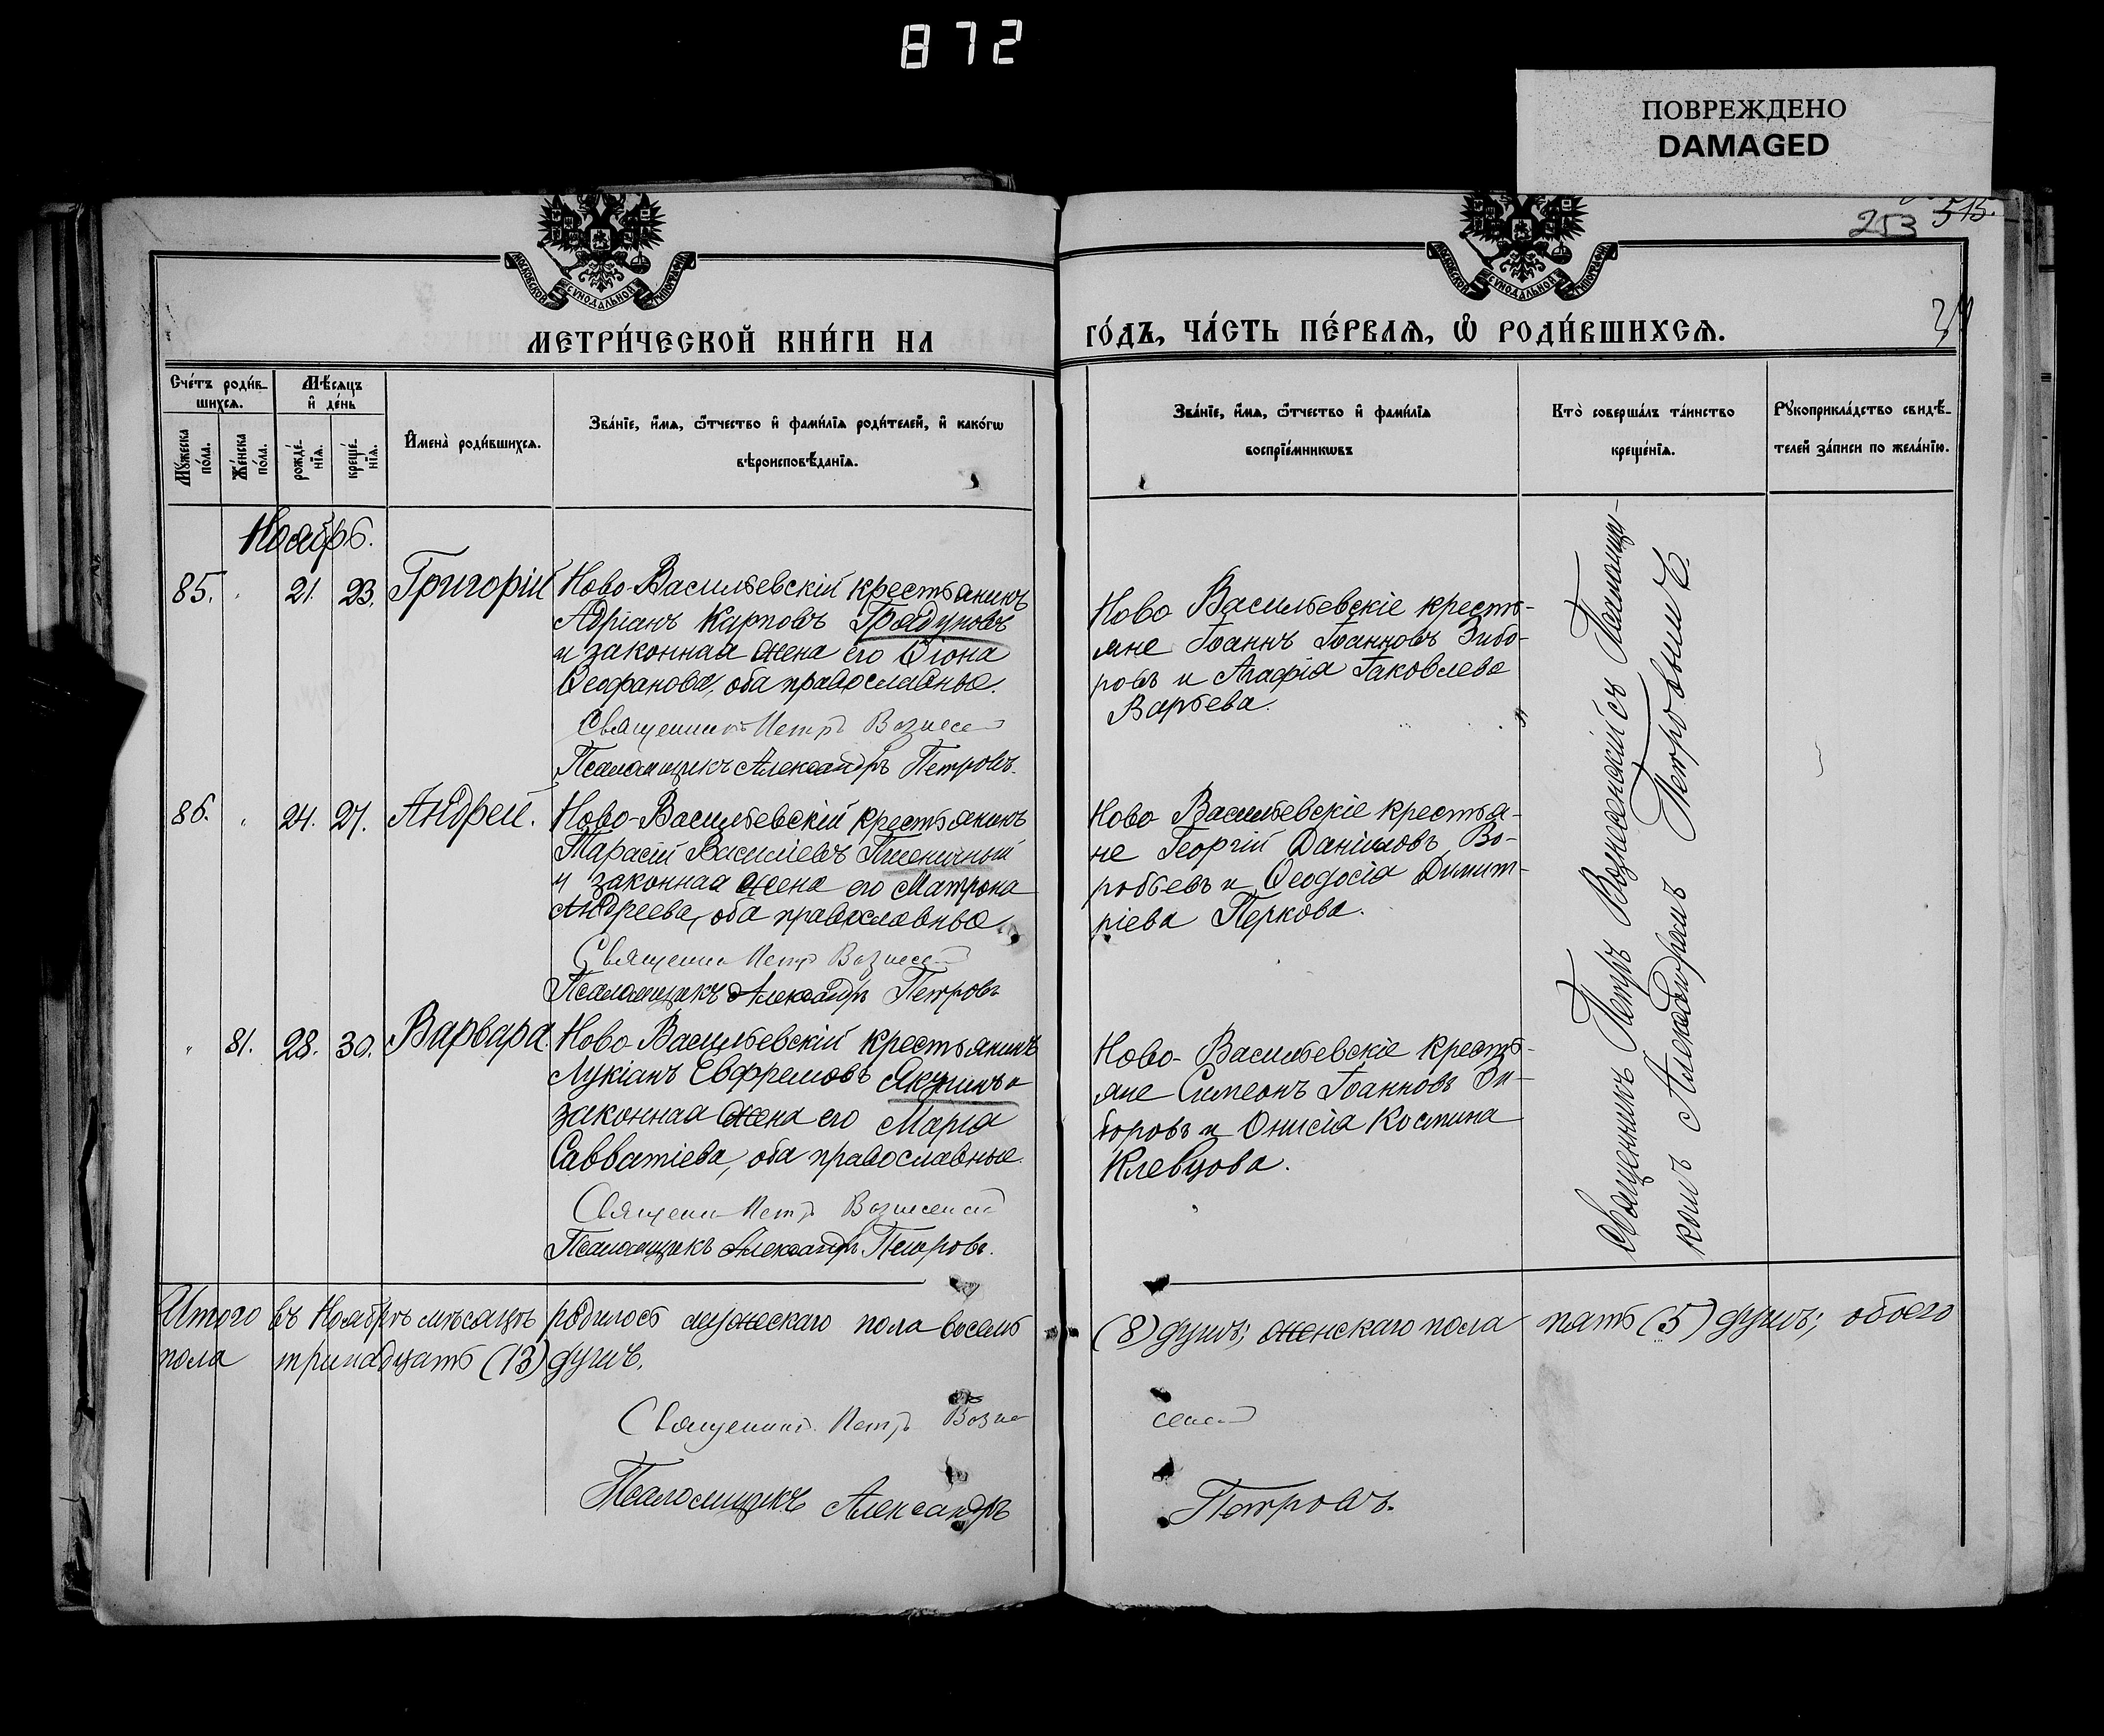 872
ПОВРЕЖДЕНО
DAMAGED
253 515.
МОСКОВСКОЙ СѴНОДАЛЬНОЙ ТИПОГРАФІИ
МОСКОВСКОЙ СѴНОДАЛЬНОЙ ТИПОГРАФІИ
МЕТРИ́ЧЕСКОЙ КНИ́ГИ НА
ГО́ДЪ, ЧА́СТЬ ПЕ́РВАЯ, Ѡ҆ РОДИ́ВШИХСЯ.
Сче́тъ роди́в-
шихся.
Мꙋжеска по́ла.
Же́нска по́ла.
Мѣ́сяцъ
и҆ де́нь
рожде́-
нїя.
креще́-
нїя.
И҆мена̀ роди́вшихся.
Зва́нїе, и҆́мя, ѻ҆́тчество и҆ фами́лїя роди́телей, и҆ како́гѡ
вѣроисповѣ́данїя.
Зва́нїе, и҆́мя, ѻ҆́тчество и҆ фами́лїя
воспрїе́мникѡвъ
Кто̀ соверша́лъ та́инство
креще́нїя.
Рꙋкоприкла́дство свидѣ́-
телей за́писи по жела́нїю.
Ноябрь.
85. " 21. 23. Григорій
Ново-Васильевскій крестьянинъ
Адріанъ Карповъ Грядуновъ
и законная жена его Ѳіона
Ѳеофанова, оба православные.
Священникъ Петръ Вознесен
Псаломщикъ Александръ Петровъ.
Ново Васильевскіе кресть-
яне Іоаннъ Іоанновъ Зибо-
ровъ и Агафія Іаковлева
Варьева.
86. " 24. 27. Андрей.
Ново-Васильевскій крестьянинъ
Тарасій Василіевъ Пшеничный
и законная жена его Матрона
Андреева, оба православные.
Священн Петръ Вознесен
Псаломщикъ Александръ Петровъ
Ново Васильевскіе крестья-
не Георгій Даніиловъ Во-
робьевъ и Ѳеодосія Димит-
ріева Перкова.
" 81. 28. 30. Варвара.
Ново Васильевскій крестьянинъ
Лукіанъ Евфремовъ Якунинъ и
законная жена его Марія
Савватіева, оба православные.
Священн Петръ Вознесенск
Псаломщикъ Александръ Петровъ.
Ново-Васильевскіе кресть-
яне Симеонъ Іоанновъ Зи-
боровъ и Онисія Космина
Клевцова.
Священникъ Петръ Вознесенскій съ Псаломщи-
комъ Александромъ Петровымъ
Итого въ Ноябрѣ мѣсяцѣ родилось мужескаго пола восемь (8) душъ; женскаго пола пять (5) душъ; обоего
пола тринадцать (13) душъ.
Священникъ Петръ Возне сенск
Псаломщикъ Александръ Петровъ.